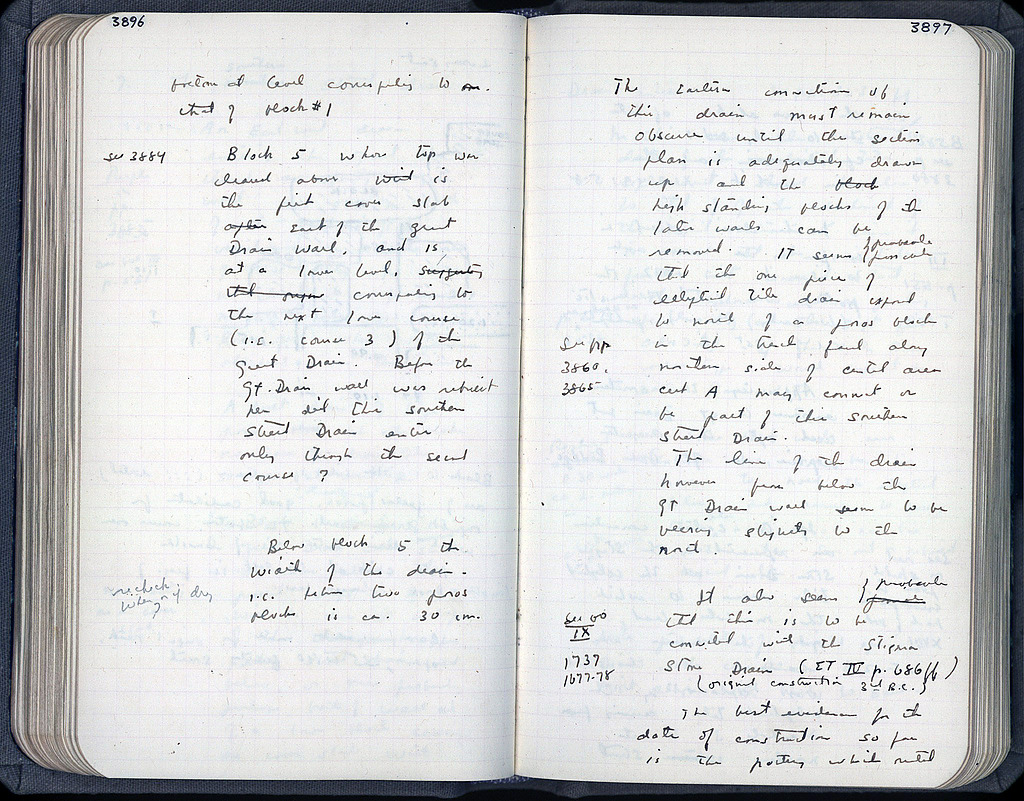 3896
bottom at level corresponding to
that of block #1
see 3884
Block 5 whose top was
cleared above is
the first cover slab
after east of the great
Drain wall, and is
at a lower level, suggesting
that corresponding to
the next lower course
(i.e. course 3) of the
great Drain. Before the
gt. Drain wall was rebuilt
here did this southern
Street Drain enter
only through the second
course?
Below block 5 the
width of the drain -
i.e. between two poros
blocks is ca. 30 cm.
recheck
when dry
?
3897
The Eastern connection of
this drain must remain
obscure until the section
plan is adequately drawn
up and the block
high standing blocks of the
later walls can be
removed. IT seems { probable
possible
that the one piece of
elliptical tile drain exposed
to north of a poros block
See pp
3860,
3865
in the trench found along
northern side of central area
cut A may connect or
be part of this southern
Street Drain.
The line of the drain
however from below the
gt Drain wall seems to be
veering slightly to the
north
It also seems { probable
possible
that this is to be
connected with the Stigma
Stone Drain (ET IV p. 686ff)
(original construction 3rd B.C.)
see
IX
1737
1677-78
The best evidence for the
date of construction so far
is the pottery which